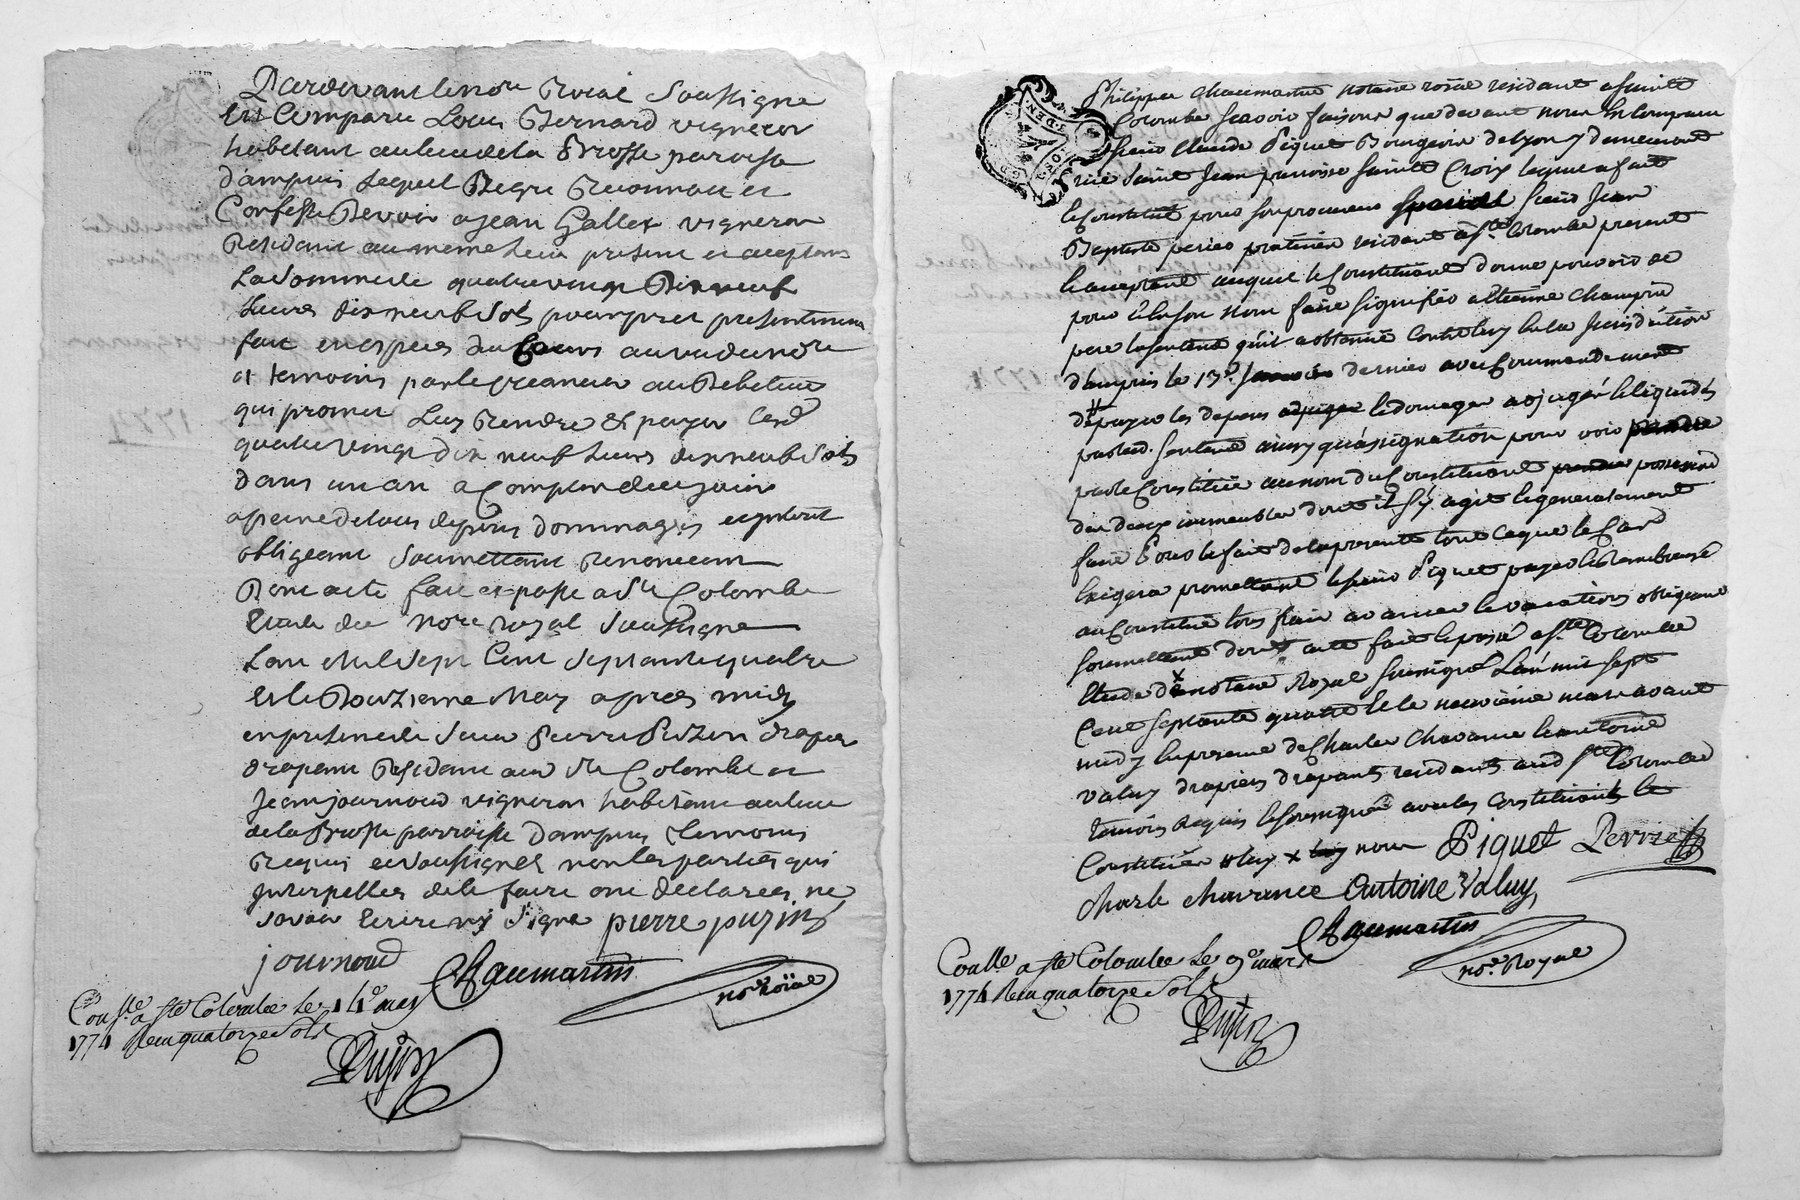 Pardevant le no.re Roial Soussigne
Est Comparu Louis Bernard vigneron
habitant au lieu de la Brosse paroisse
d'ampuis Lequel De gre Reconnoit et
Confesse Devoir a jean Gallet vigneron
Residant au meme Lieu present et acceptant
La Somme de quatre vingt Dix neuf
Livres dix neuf Sols pour prest presentement
fait en especes du Cours au vu de no.re
et temoins par le creancier au Debiteur
qui promet Luy Rendre et payer Lesd
quatre vingt dix neuf Livres dix neuf Sols
Dans un an a Compter de ce jour
a peine de tous depens Dommages
obligeant Soumettant Renonceant
Dont acte fait et passe a Ste Colombe
Etude du No.re royal Soussigne
Lan Mil Sept Cent Septante quatre
Et le Douzieme May apres midy
en presence de Sieur Pierre Puzin drapier
drapant Residant aud Ste Colombe et
Jean journoud vigneron habitant au lieu
de la Brosse parroisse Dampuis temoins
Requis et Soussignes non les parties qui
Interpelles de le faire ont declarees ne
Savoir Ecrire ny Signe pierre puzin
journoud Chaumartin no.re roïal
Con.lle a Ste Colombe Le 14e may
1774 Recu quatorze Sols
Pujin
Philippe Chaumartin notaire roial residant a Sainte
Colombe Scavoir faisons que devant nous Est Comparu
Sieur Claude Piquet Bourgeois de Lyon y demeurant
rüe Saint Jean paroisse Sainte Croix lequel a fait
& Constitué pour son procureur Special Sieur Jean
Baptiste perier praticien residant a Ste. Colombe present
& acceptant auquel le Constituant donne pouvoir de
pour & En Son Nom faire Signifier a Etienne Champin
pere la Sentence qu'il a obtenuë Contre luy En la Jurisdiction
d'ampuis le 13e. Janvier dernier avec Commandement
de payer les depens & domages adjugés & liquidés
par lad. Sentence ainsy qu'assignation pour voir prendre
par le Constitué au nom du Constituant prendre possession
des deux immeubles dont il S'y agit & generalement
faire Pour le fait de la presente tout ce que le Cas
Exigera promettant le Sieur Piquet payer & Rembourser
au Constitué tous frais avances & vacations obligeant
Soumettant dont acte fait & passé a Ste Colombe
Etude du notaire Royal Soussigné L'an mil Sept
Cent Septante quatre & le neuvième mars avant
midy En presence de Charles Chavance & antoine
Valuy drapiers drapants residants aud Ste Colombe
temoins requis & Soussignés avec les Constituant &
Constitué luy nous Piquet Perrier
Charle Chavance Antoine Valuy
Chaumartin no.re Royal
Con.lle a Ste Colombe Le 9e mars
1774 Recu quatorze Sols
Pujin